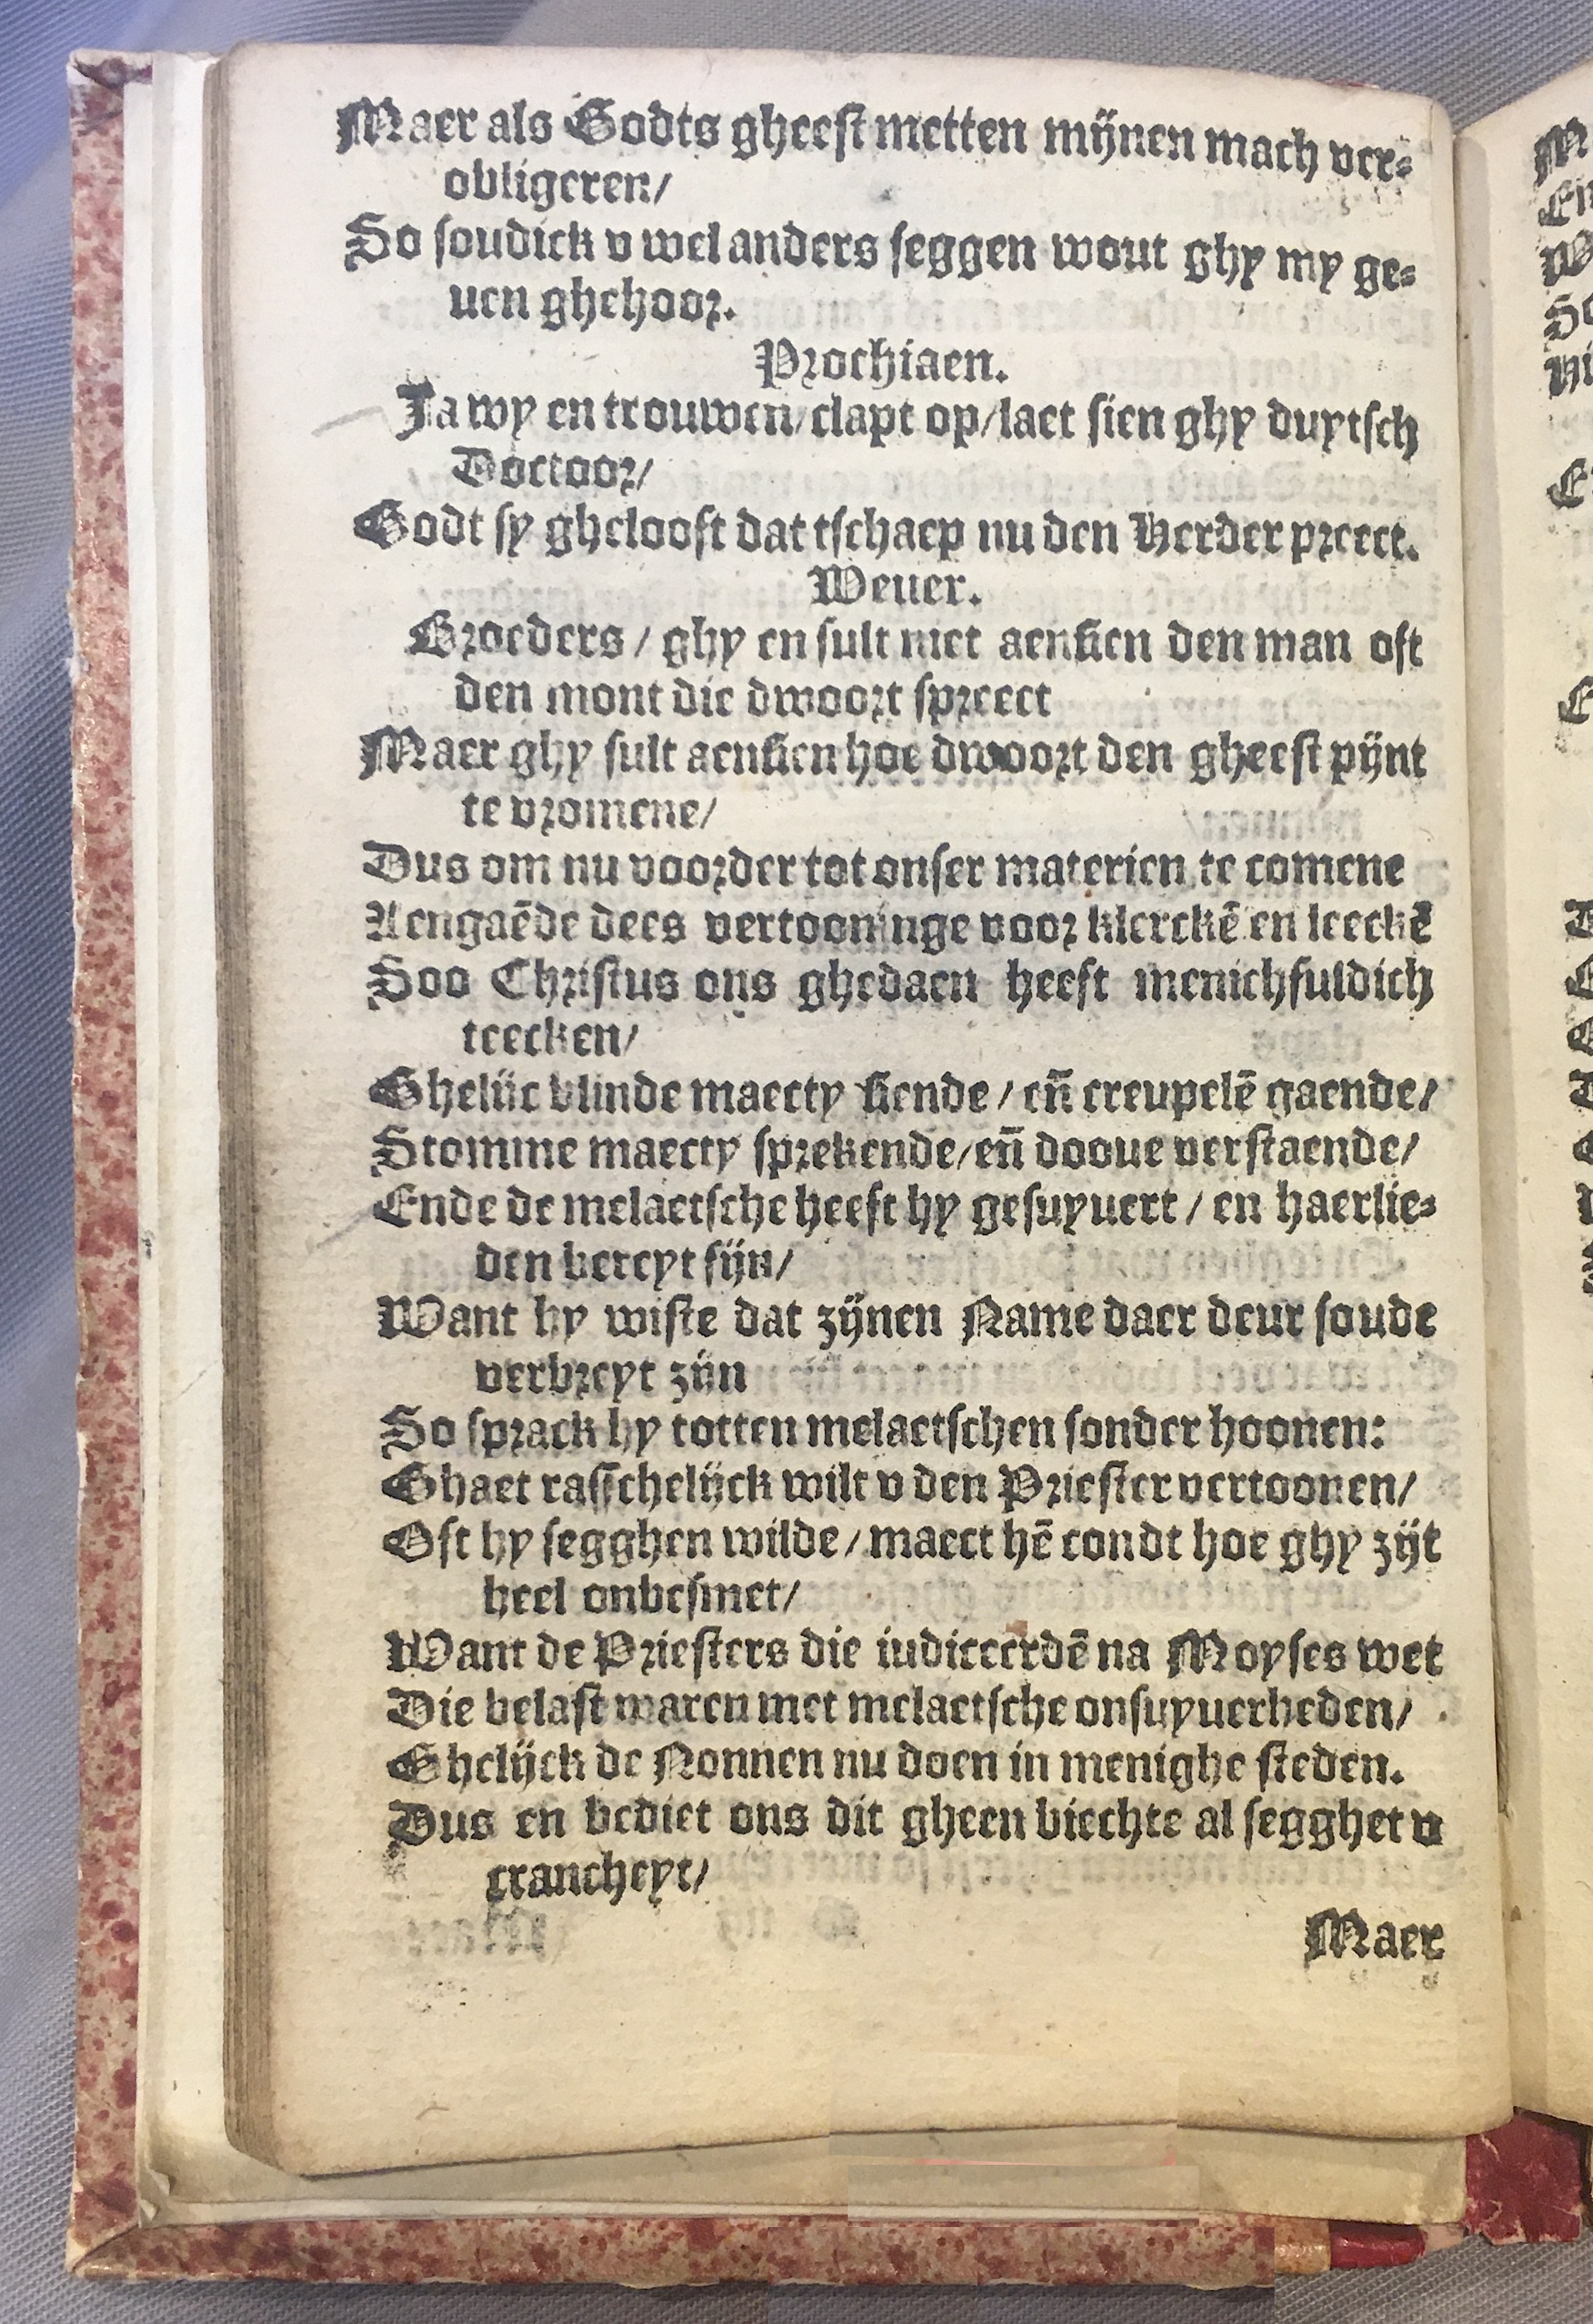 Maer als Godts gheest metten mijnen mach ver-
obligeren/
So soudick v wel anders seggen wout ghy my ge-
uen ghehoor.
Prochiaen.
Ja wy en trouwen/clapt op/laet sien ghy duytsch
Doctoor/
Godt sy gheloost dat tschaep nu den Herder preect.
Weuer.
Broeders/ ghy en sult niet aensien den man oft
den mont die dwoort spreect
Maer ghy sult aensien hoe dwoort den gheest pijnt
te vromene/
Dus om nu voorder tot onser materien te comene
Aengaēde dees vertooninge voor klerckē en leeckē
Soo Christus ons ghedaen heeft menichfuldich
teecken/
Ghelijc blinde maecty siende/ eñ creupelē gaende/
Stomme maecty sprekende/eñ dooue verstaende/
Ende de melaetsche heeft hy gesuyuert/ en haerlie-
den bereyt sijn/
Want hy wiste dat zijnen Name daer deur soude
verbreyt zijn
So sprack hy totten melaetschen sonder hoonen:
Ghaet rasschelijck wilt v den Priester vertoonen/
Oft hy segghen wilde/ maect hē condt hoe ghy zijt
heel onbesmet/
Want de Priesters die iudiceerdē na Moyses wet
Die belast waren met melaetsche onsuyuerheden/
Ghelijck de Nonnen nu doen in menighe steden.
Dus en bediet ons dit gheen biechte al segghet v
crancheyt/
Maer